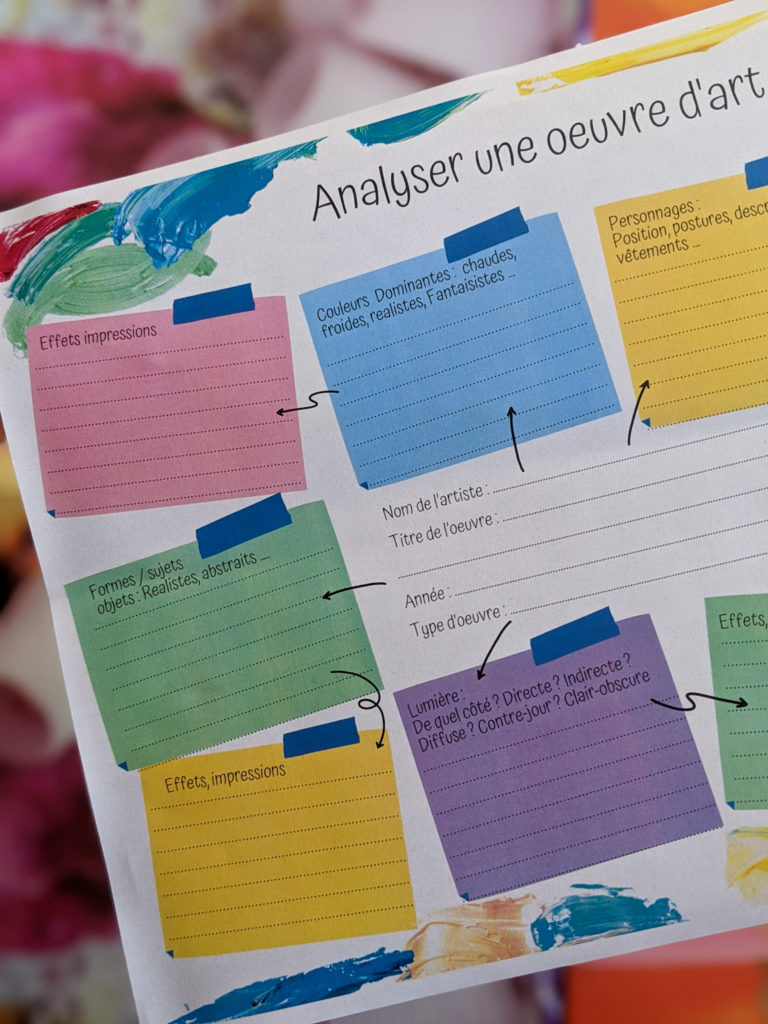 Analyser une oeuvre d'art
Effets impressions
Couleurs Dominantes : chaudes,
froides, realistes, Fantaisistes ...
Personnages :
Position, postures,
vêtements ...
Nom de l'artiste :
Titre de l'oeuvre :
Année :
Type d'oeuvre :
Formes / sujets
objets : Realistes, abstraits ...
Effets, impressions
Lumière :
De quel côté ? Directe ? Indirecte ?
Diffuse ? Contre-jour ? Clair-obscure
Effets,